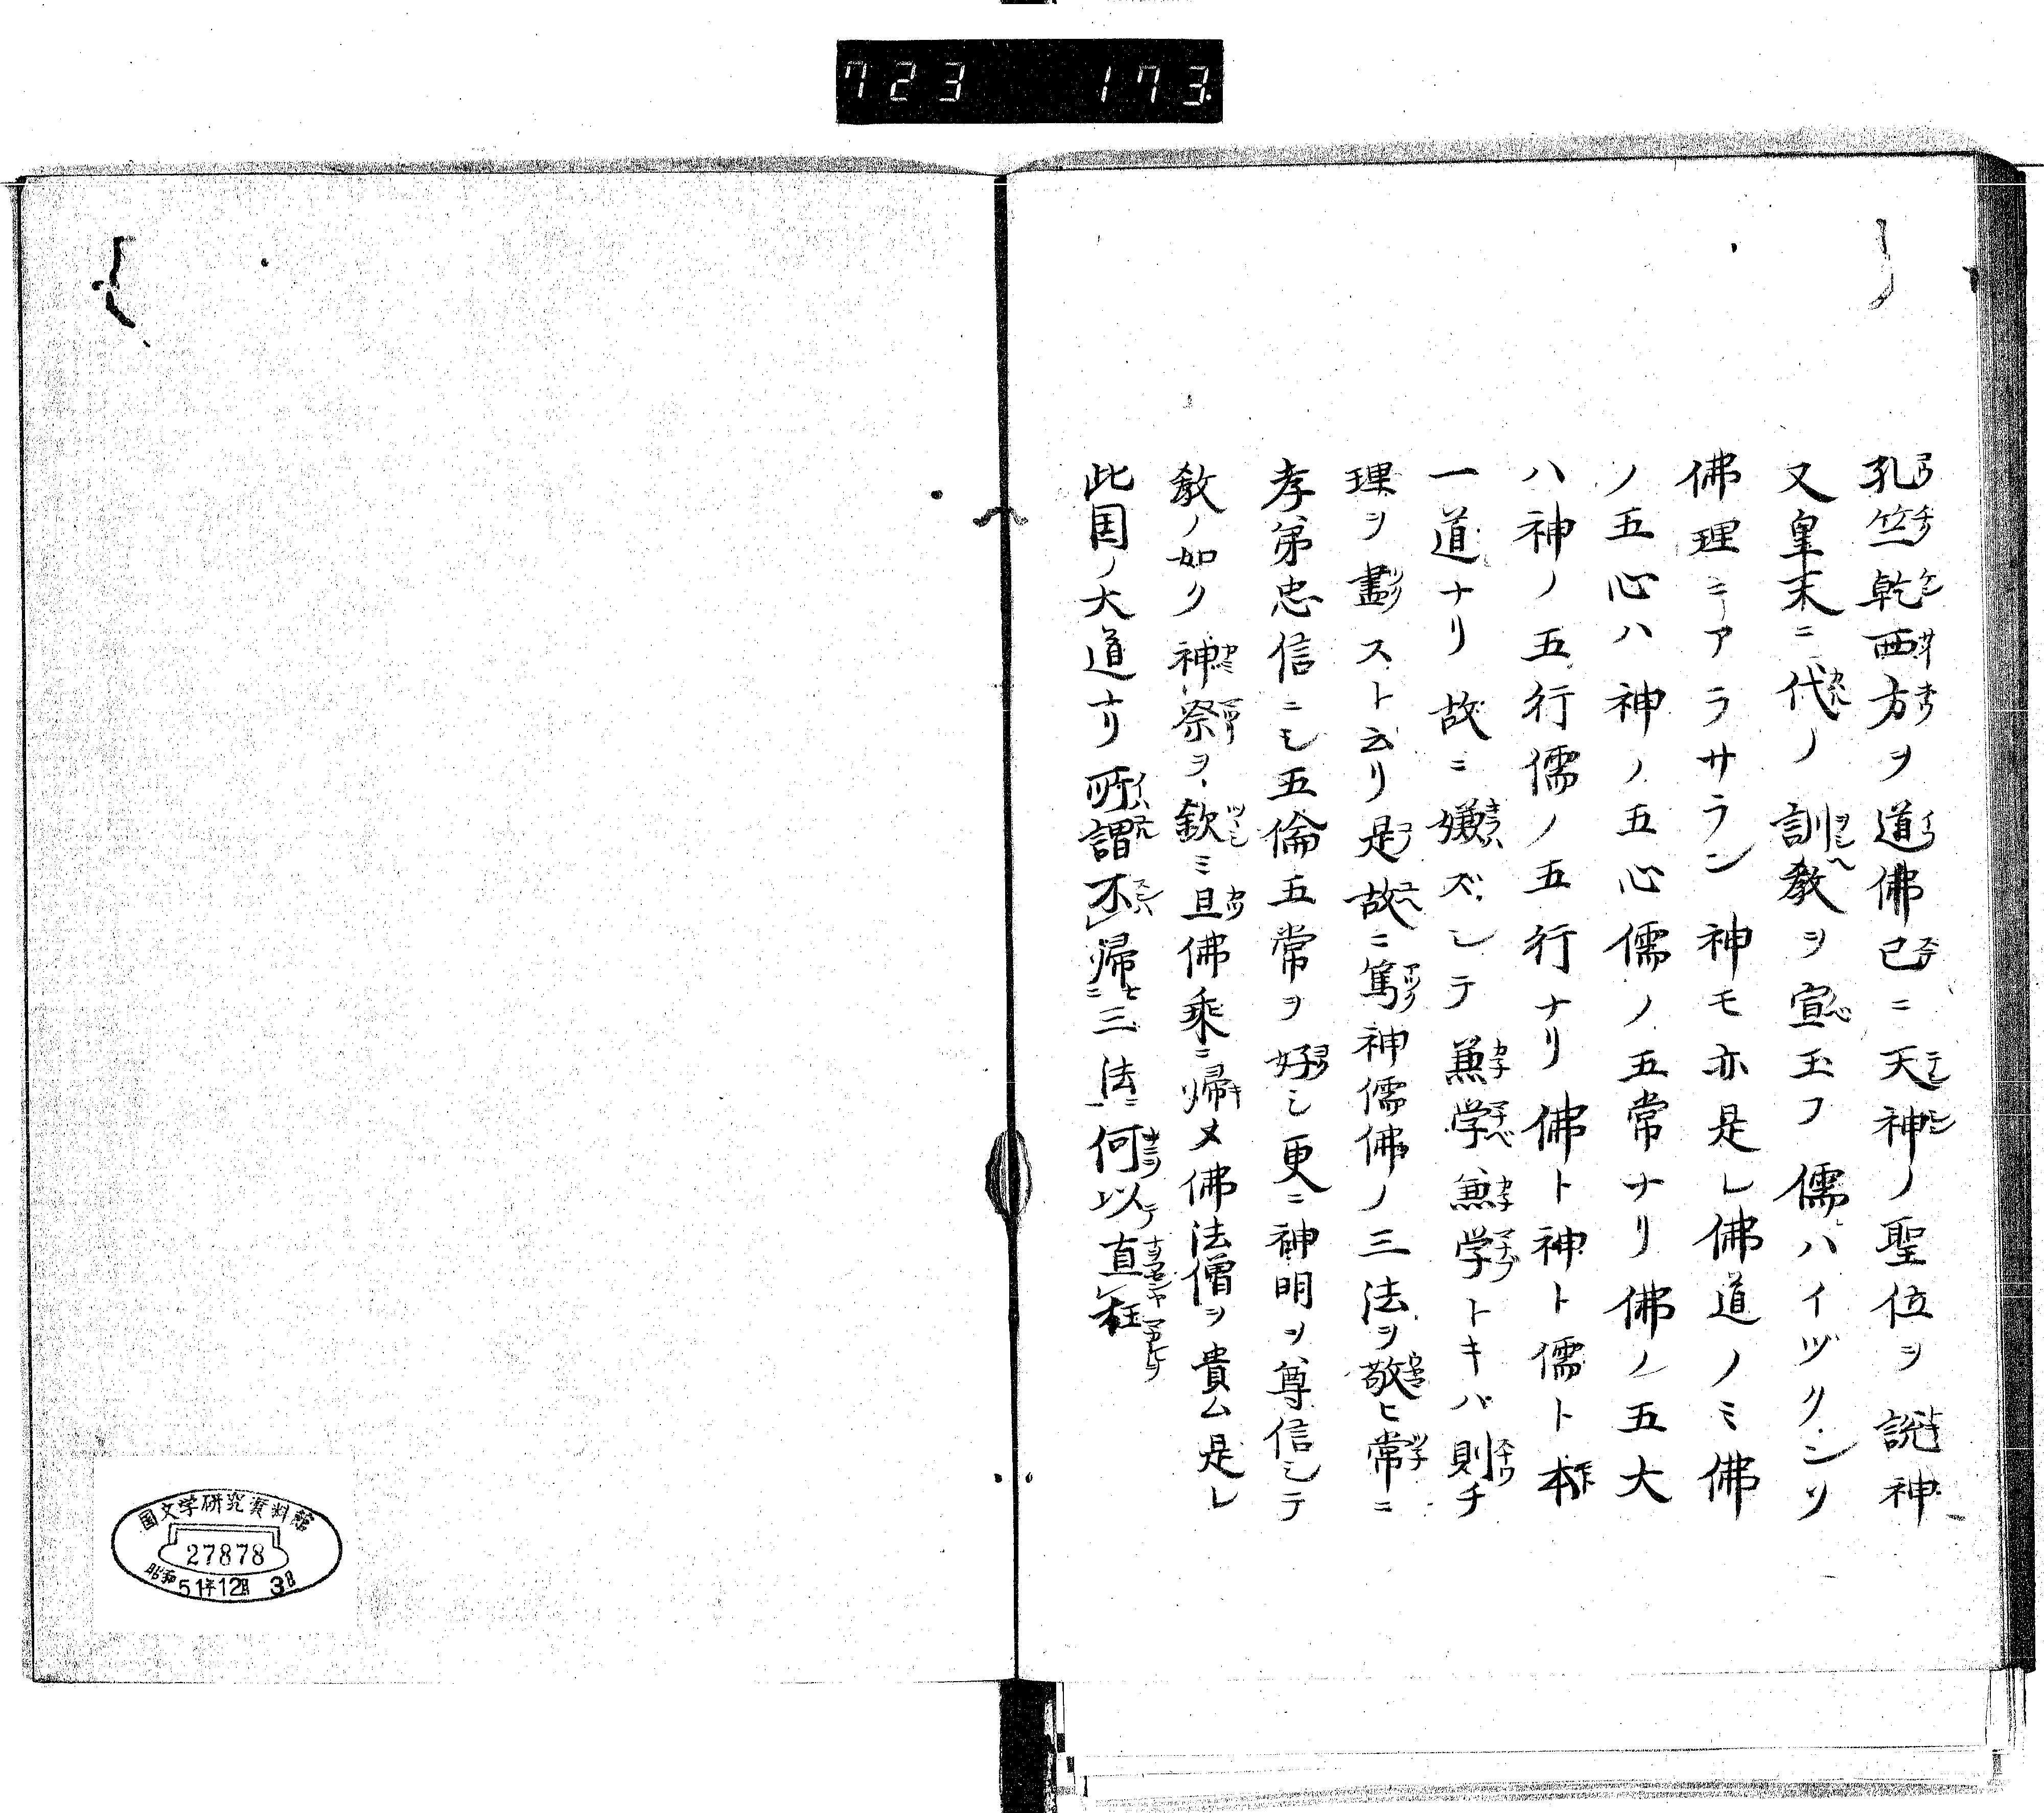 723 173.
孔竺乾西方ヲ道佛已ニ天神ノ聖位ヲ説神
又皇末ニ代ノ訓教ヲ宣玉フ儒ハイヅクンゾ
佛理ニアラサラン神モ亦是レ佛道ノミ佛
ノ五心ハ神ノ五心儒ノ五常ナリ佛ノ五大
ハ神ノ五行儒ノ五行ナリ佛ト神ト儒ト本
一道ナリ故ニ嫌ズシテ兼学兼学トキバ則チ
理ヲ盡ストムリ是故ニ篤神儒佛ノ三法ヲ敬ヒ常ニ
孝弟忠信ニシ五倫五常ヲ好シ更ニ神明ヲ尊信シテ
教ノ如ク神祭ヲ欽ミ且佛乗ニ帰メ佛法僧ヲ貴ム是レ
此国ノ大道ナリ所謂不レ帰ニ三法ニ何以直レ枉
国文学研究資料館
27878
昭和51年12月3日